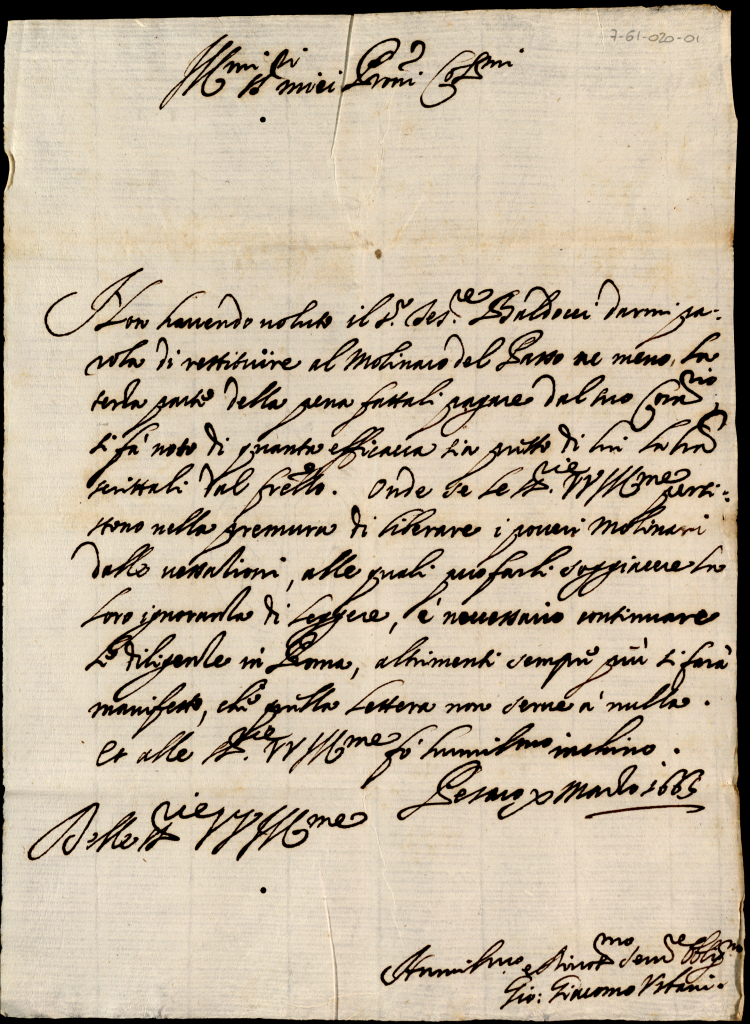 7-61-020-01
Ill.mi S.ri miei Proni Col.mi
Non havendo voluto il S.r Ces.re Baldocci darmi pa-
rola di restituire al Molinaro del Passo ne meno la
terza parte della pena fattali pagare dal suo Com.rio
si fà noto di quanta efficacia sia presso di lui la
scrittali dal frello. Onde se le S.rie VV Ill.me persi-
stono nella premura di liberare i poveri Molinari
dalle vessationi, alle quali può farli soggiacere la
loro ignoranza di leggere, è necessario continuare
le diligenze in Roma, altrimenti sempre più si farà
manifesto, che quella lettera non serve à nulla.
Et alle S.rie VV Ill.me fò humil.mo inchino.
Pesaro x Marzo 1663
Delle S.rie VV Ill.me
Humil.mo e Divot.mo Serv.re Obblig.mo
Gio: Giacomo Vrbani.